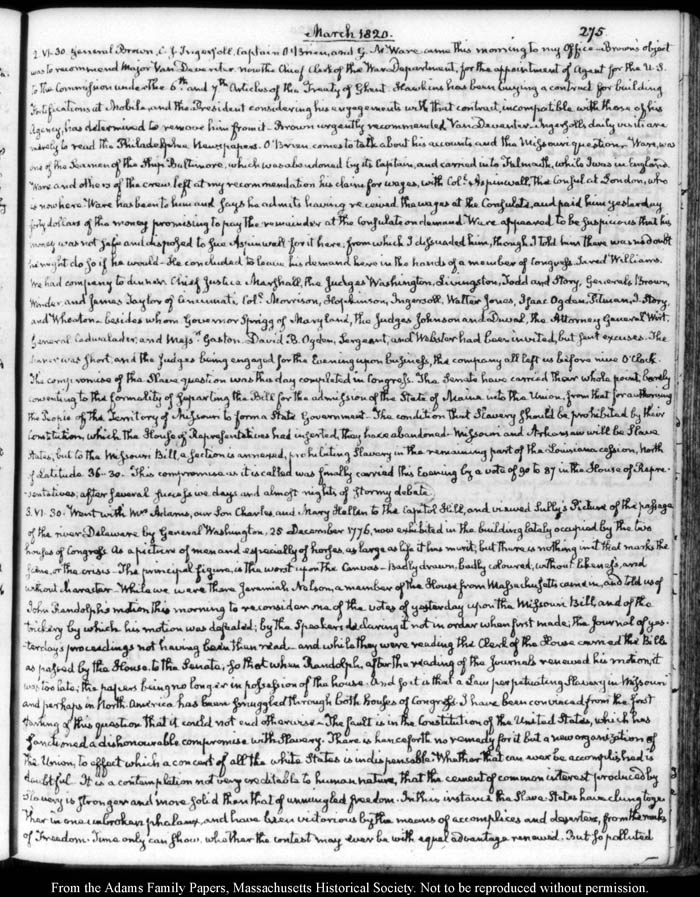 March 1820.
275.
2. VI:30. General Brown, C. J. Ingersoll, Captain O'Brien, and G. M. Ware came this morning to my Office. Brown's object
was to recommend Major Van Deventer, now the Chief Clerk of the War Department, for the appointment of Agent for the U.S.
to the Commission under the 6th and 7th Articles of the Treaty of Ghent. Hawkins has been buying a contract for building
fortifications at Mobile, and the President considering his engagements with that contract, incompatible with those of his
Agency, has determined to remove him from it. Brown urgently recommended Van Deventer. Ingersoll's daily visits are
merely to read the Philadelphia Newspapers. O'Brien comes to talk about his accounts and the Missouri question. Ware, was
one of the Seamen of the Ship Baltimore, which was abandoned by its Captain, and carried into Falmouth, while I was in England.
Ware and others of the crew left at my recommendation his claim for wages, with Coll. Aspinwall, the Consul at London, who
is now here. Ware has been to him and says he admits having received the wages at the Consulate, and paid him yesterday
forty dollars of the money promising to pay the remainder at the Consulate on demand. Ware appeared to be suspicious that his
money was not safe and disposed to sue Aspinwall for it here; from which I dissuaded him, though I told him there was no doubt
he might do so if he would. He concluded to leave his demand here in the hands of a member of Congress. Jared Williams.
We had company to dinner. Chief Justice Marshall, the Judges Washington, Livingston, Todd and Story, Generals Brown,
Winder and James Taylor of Cincinnati, Coll. Morrison, Hopkinson, Ingersoll, Walter Jones, Isaac Ogden, Pitman, I. Story,
and Wheaton. besides whom Governor Sprigg of Maryland, the Judges Johnson and Duval, the Attorney General Wirt,
General Cadwalader, and Mess.rs Gaston, David B. Ogden, Sergeant, and Webster had been invited, but sent excuses. The
dinner was short, and the Judges being engaged for the Evening upon business, the company all left us before nine O'Clock.
The compromise of the Slave question was this day completed in Congress. The Senate have carried their whole point, barely
consenting to the formality of separating the Bill for the admission of the State of Maine into the Union, from that for authorising
the People of the Territory of Missouri to form a State Government. The condition that Slavery should be prohibited by their
Constitution, which the House of Representatives had inserted, they have abandoned. Missouri and Arkansaw will be Slave
States, but to the Missouri Bill, a Section is annexed, prohibiting Slavery in the remaining part of the Louisiana cession, North
of Latitude 36-30. This compromise as it is called was finally carried this Evening by a vote of 90 to 87 in the House of Repre-
-sentatives, after several successive days and almost nights of stormy debate.
3. VI:30. Went with Mrs Adams, our Son Charles and Mary Hellen to the Capitol Hill, and viewed Sully's Picture of the passage
of the river Delaware by General Washington, 25 December 1776, now exhibited in the building lately occupied by the two
houses of Congress. As a picture of men and especially of horses, as large as life it has merit; but there is nothing in it that marks the
scene, or the crisis. The principal figure, is the worst upon the Canvas—badly drawn, badly coloured, without likeness, and
without character. While we were there Jeremiah Nelson, a member of the House from Massachusetts came in, and told us of
John Randolph's motion this morning to reconsider one of the votes of yesterday upon the Missouri Bill, and of the
trickery by which his motion was defeated; by the Speaker's declaring it not in order when first made; the Journal of yes-
-terday's proceedings not having been then read—and while they were reading the Clerk of the House carried the Bill
as passed by the House, to the Senate; so that when Randolph, after the reading of the Journals renewed his motion, it
was too late; the papers being no longer in possession of the house. And so it is that a Law perpetuating Slavery in Missouri
and perhaps in North America has been smuggled through both houses of Congress. I have been convinced from the first
starting of this question that it could not end otherwise. The fault is in the Constitution of the United States, which has
sanctioned a dishonourable compromise with Slavery. There is henceforth no remedy for it but a new organization of
the Union, to effect which a concert of all the white States is indispensable. Whether that can ever be accomplished is
doubtful. It is a contemplation not very creditable to human nature, that the cement of common interest produced by
Slavery is stronger and more solid than that of unmingled freedom. In this instance the Slave States have clung toge-
-ther in one unbroken phalanx, and have been victorious by the means of accomplices and deserters, from the ranks
of Freedom. Time only can show, whether the contest may ever be with equal advantage renewed. But so polluted
From the Adams Family Papers, Massachusetts Historical Society. Not to be reproduced without permission.